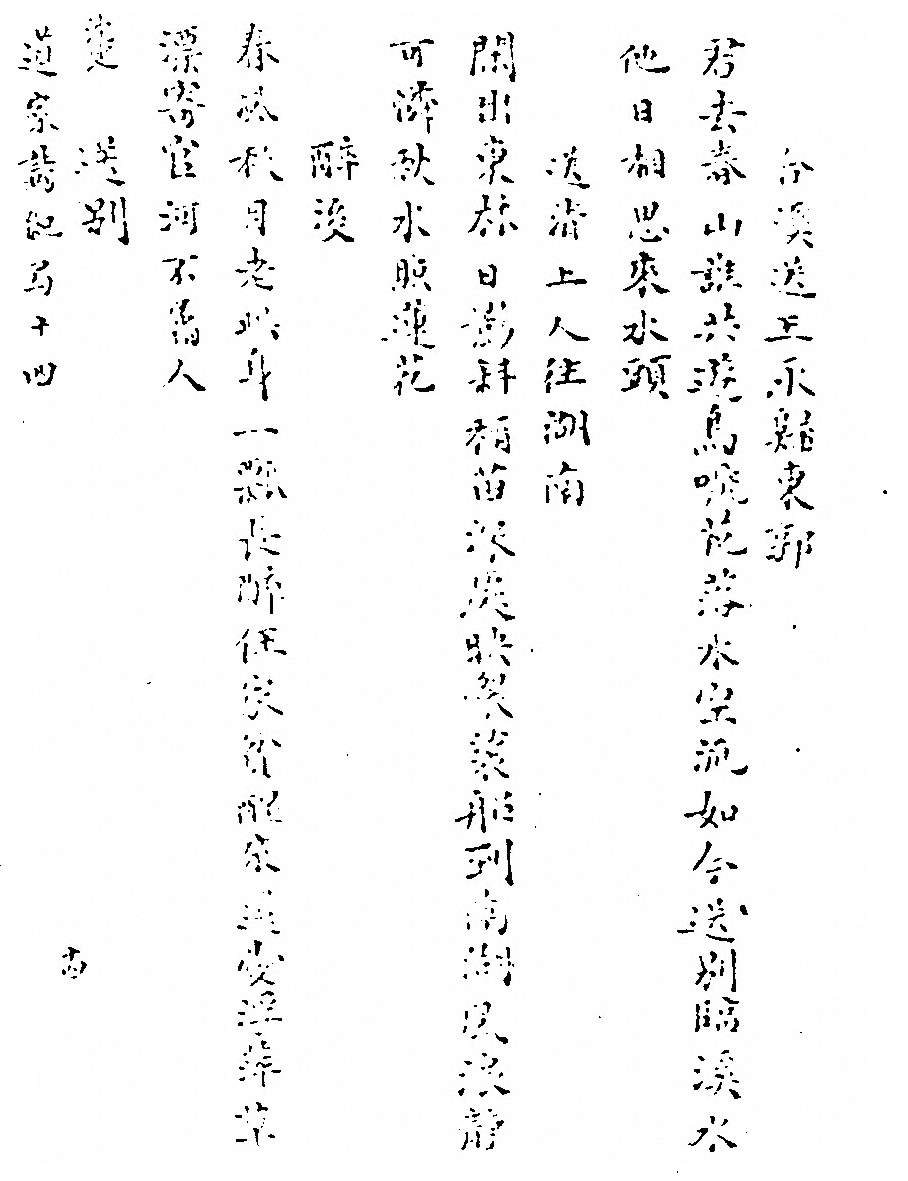 合溪送王永歸東郭
君去春山誰共遊鳥啼花落水空流如今送別臨溪水
他日相思來水頭
送清上人往湖南
閑出東林日影斜稻苗深映袈裟船到南湖風浪靜
可憐秋水照蓮花
醉後
春風秋月老此身一瓢長醉任家貧醒來還愛浮萍草
漂寄官河不屬人
送別
道家詩紀卷十四